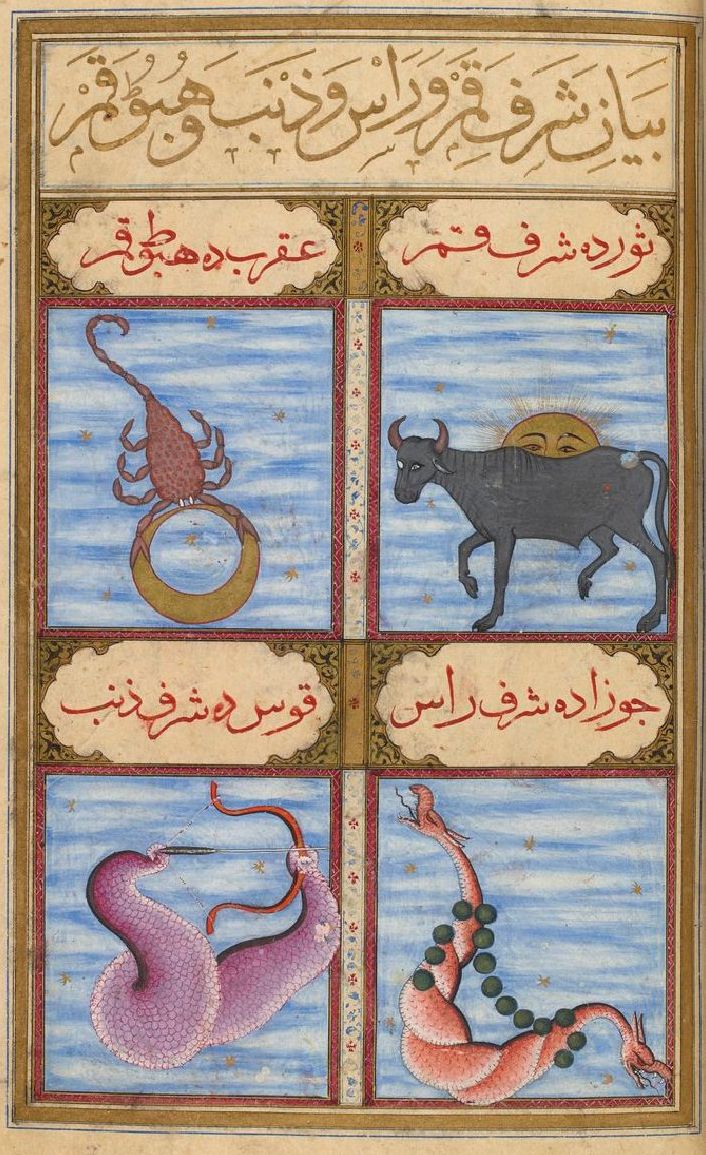 بَيَانِ شَرَفِ قَمَرْ وَرَاسْ وَذَنَبْ وَهُبُوُطِ قَمَرْ
ثور ده شرف قمر
عقرب ده هبوط قمر
جوزا ده شرف راس
قوس ده شرف ذنب